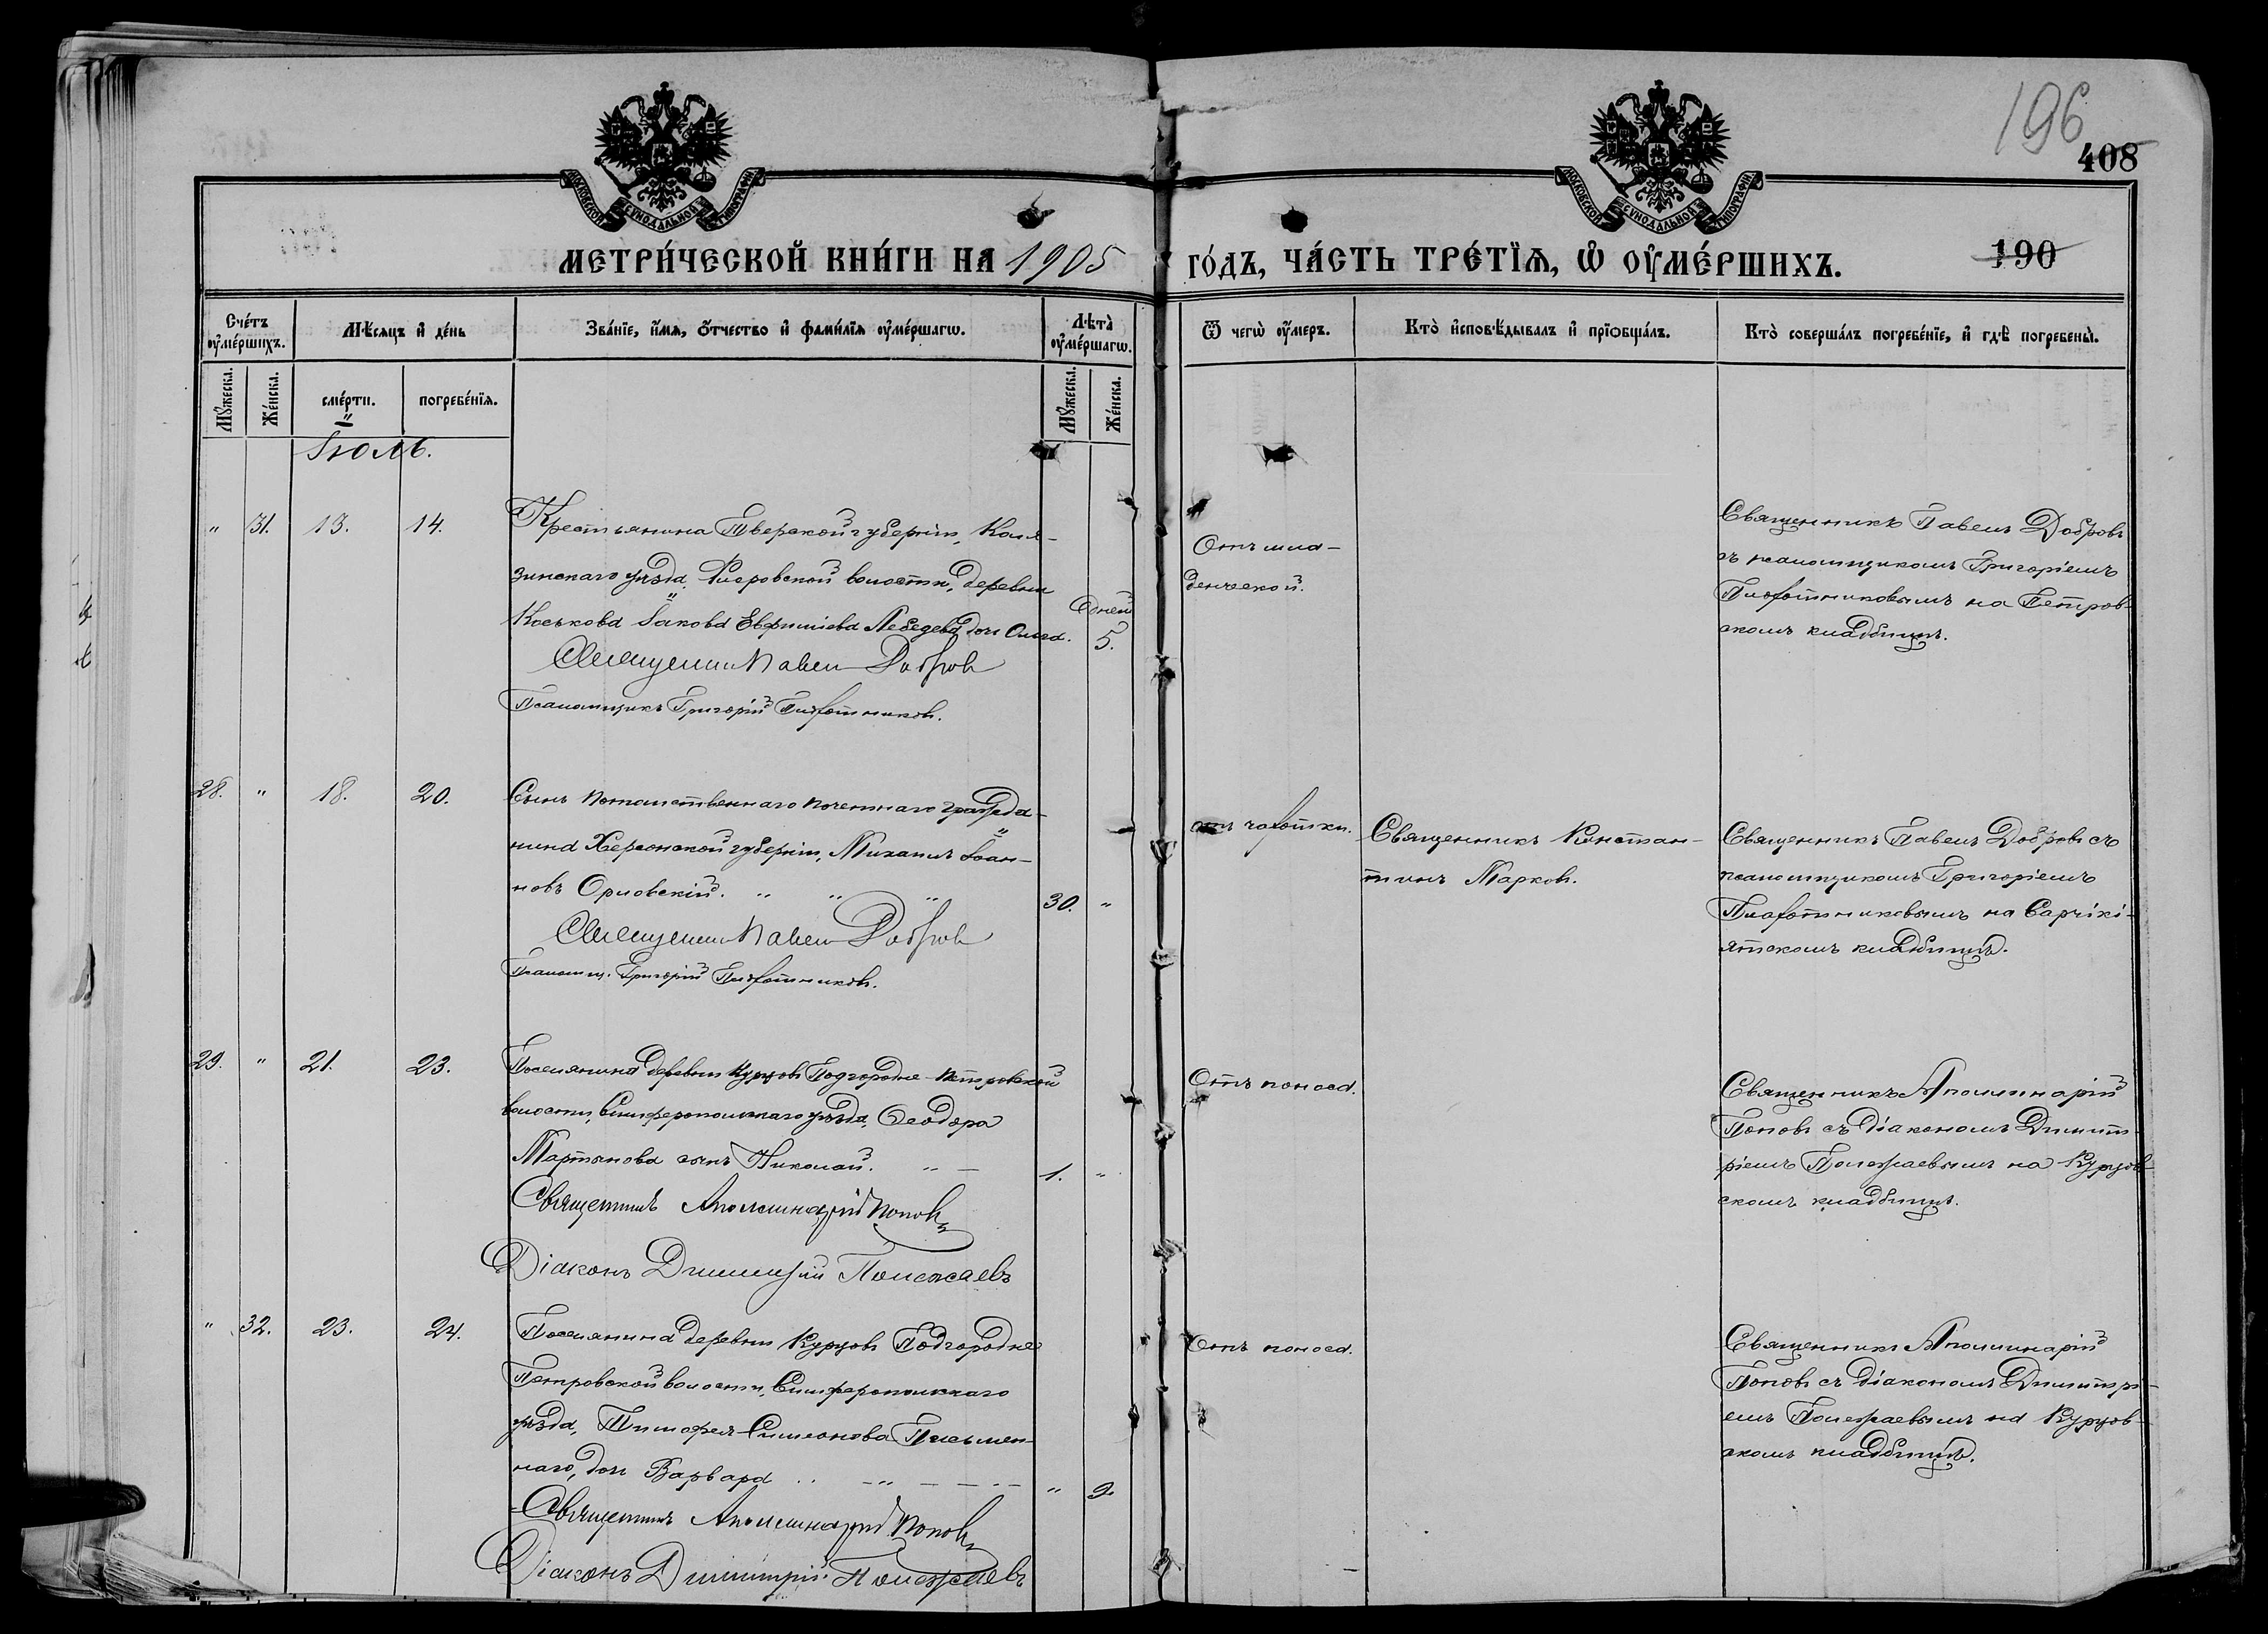 196
408
190
МОСКОВСКОЙ СѴНОДАЛЬНОЙ ТИПОГРАФІИ
МОСКОВСКОЙ СѴНОДАЛЬНОЙ ТИПОГРАФІИ
МЕТРИ́ЧЕСКОЙ КНИ́ГИ НА 1905 ГО́ДЪ, ЧА́СТЬ ТРЕ́ТЇѦ, Ѡ ОУ҆МЕ́РШИХЪ.
Сче́тъ оу҆ме́ршихъ.
Мꙋ́жеска.
Же́нска.
Мѣ́сяцъ и҆ де́нь
сме́рти.
погребе́нїѧ.
Зва́нїе, и҆́мѧ, ѻ҆́тчество и҆ фами́лїѧ оу҆ме́ршагѡ.
Лѣта̀ оу҆ме́ршагѡ.
Мꙋ́жеска.
Же́нска.
Ѿ чегѡ̀ оу҆́меръ.
Кто̀ и҆сповѣ́дывалъ и҆ прїѻбща́лъ.
Кто̀ соверша́лъ погребе́нїе, и҆ гдѣ̀ погребены̀.
Іюль.
" 31. 13. 14.
Крестьянина Тверской губерніи, Коля-
зинскаго уѣзда, волости, деревни
Коськова Іакова Евфиміева Лебедева дочь Ольга.
Дней
5.
Священник Павел Добров
Псаломщикъ Григорій Плотников.
Отъ мла-
денческой.
Священникъ Павелъ Добровъ
съ псаломщикомъ Григоріемъ
Плотниковымъ на Петров-
скомъ кладбищѣ.
28. " 18. 20.
Сынъ потомственнаго почетнаго гражда-
нина Херсонской губерніи, Михаилъ Іоан-
новъ Орловскій. " " "
30. "
Священник Павел Добров
Псаломщ. Григорій Плотниковъ.
отъ чахотки.
Священникъ Констан-
тинъ Марковъ.
Священникъ Павелъ Добровъ съ
псаломщикомъ Григоріемъ
Плотниковымъ на Сарчікі-
ятскомъ кладбищѣ.
29. " 21. 23.
Поселянина деревни Курцовъ Подгородне-Петровской
волости, Симферопольскаго уѣзда, Ѳеодора
Мартынова сынъ Николай. " —
1. "
Священникъ Аполлинарій Поповъ
Діаконъ Димитрій Полежаевъ
Отъ поноса.
Священникъ Аполлинарій
Поповъ съ діакономъ Димит-
ріемъ Полежаевымъ на Курцов-
скомъ кладбищѣ.
" 32. 23. 24.
Поселянина деревни Курцовъ Подгородне-
Петровской волости, Симферопольскаго
уѣзда, Тимофея Симеонова Письмен-
наго, дочь Варвара
" 9.
Священникъ Аполлинарій Поповъ
Діаконъ Димитрій Полежаевъ
Отъ поноса.
Священникъ Аполлинарій
Поповъ съ діакономъ Димитрі-
емъ Полежаевымъ на Курцов-
скомъ кладбищѣ.